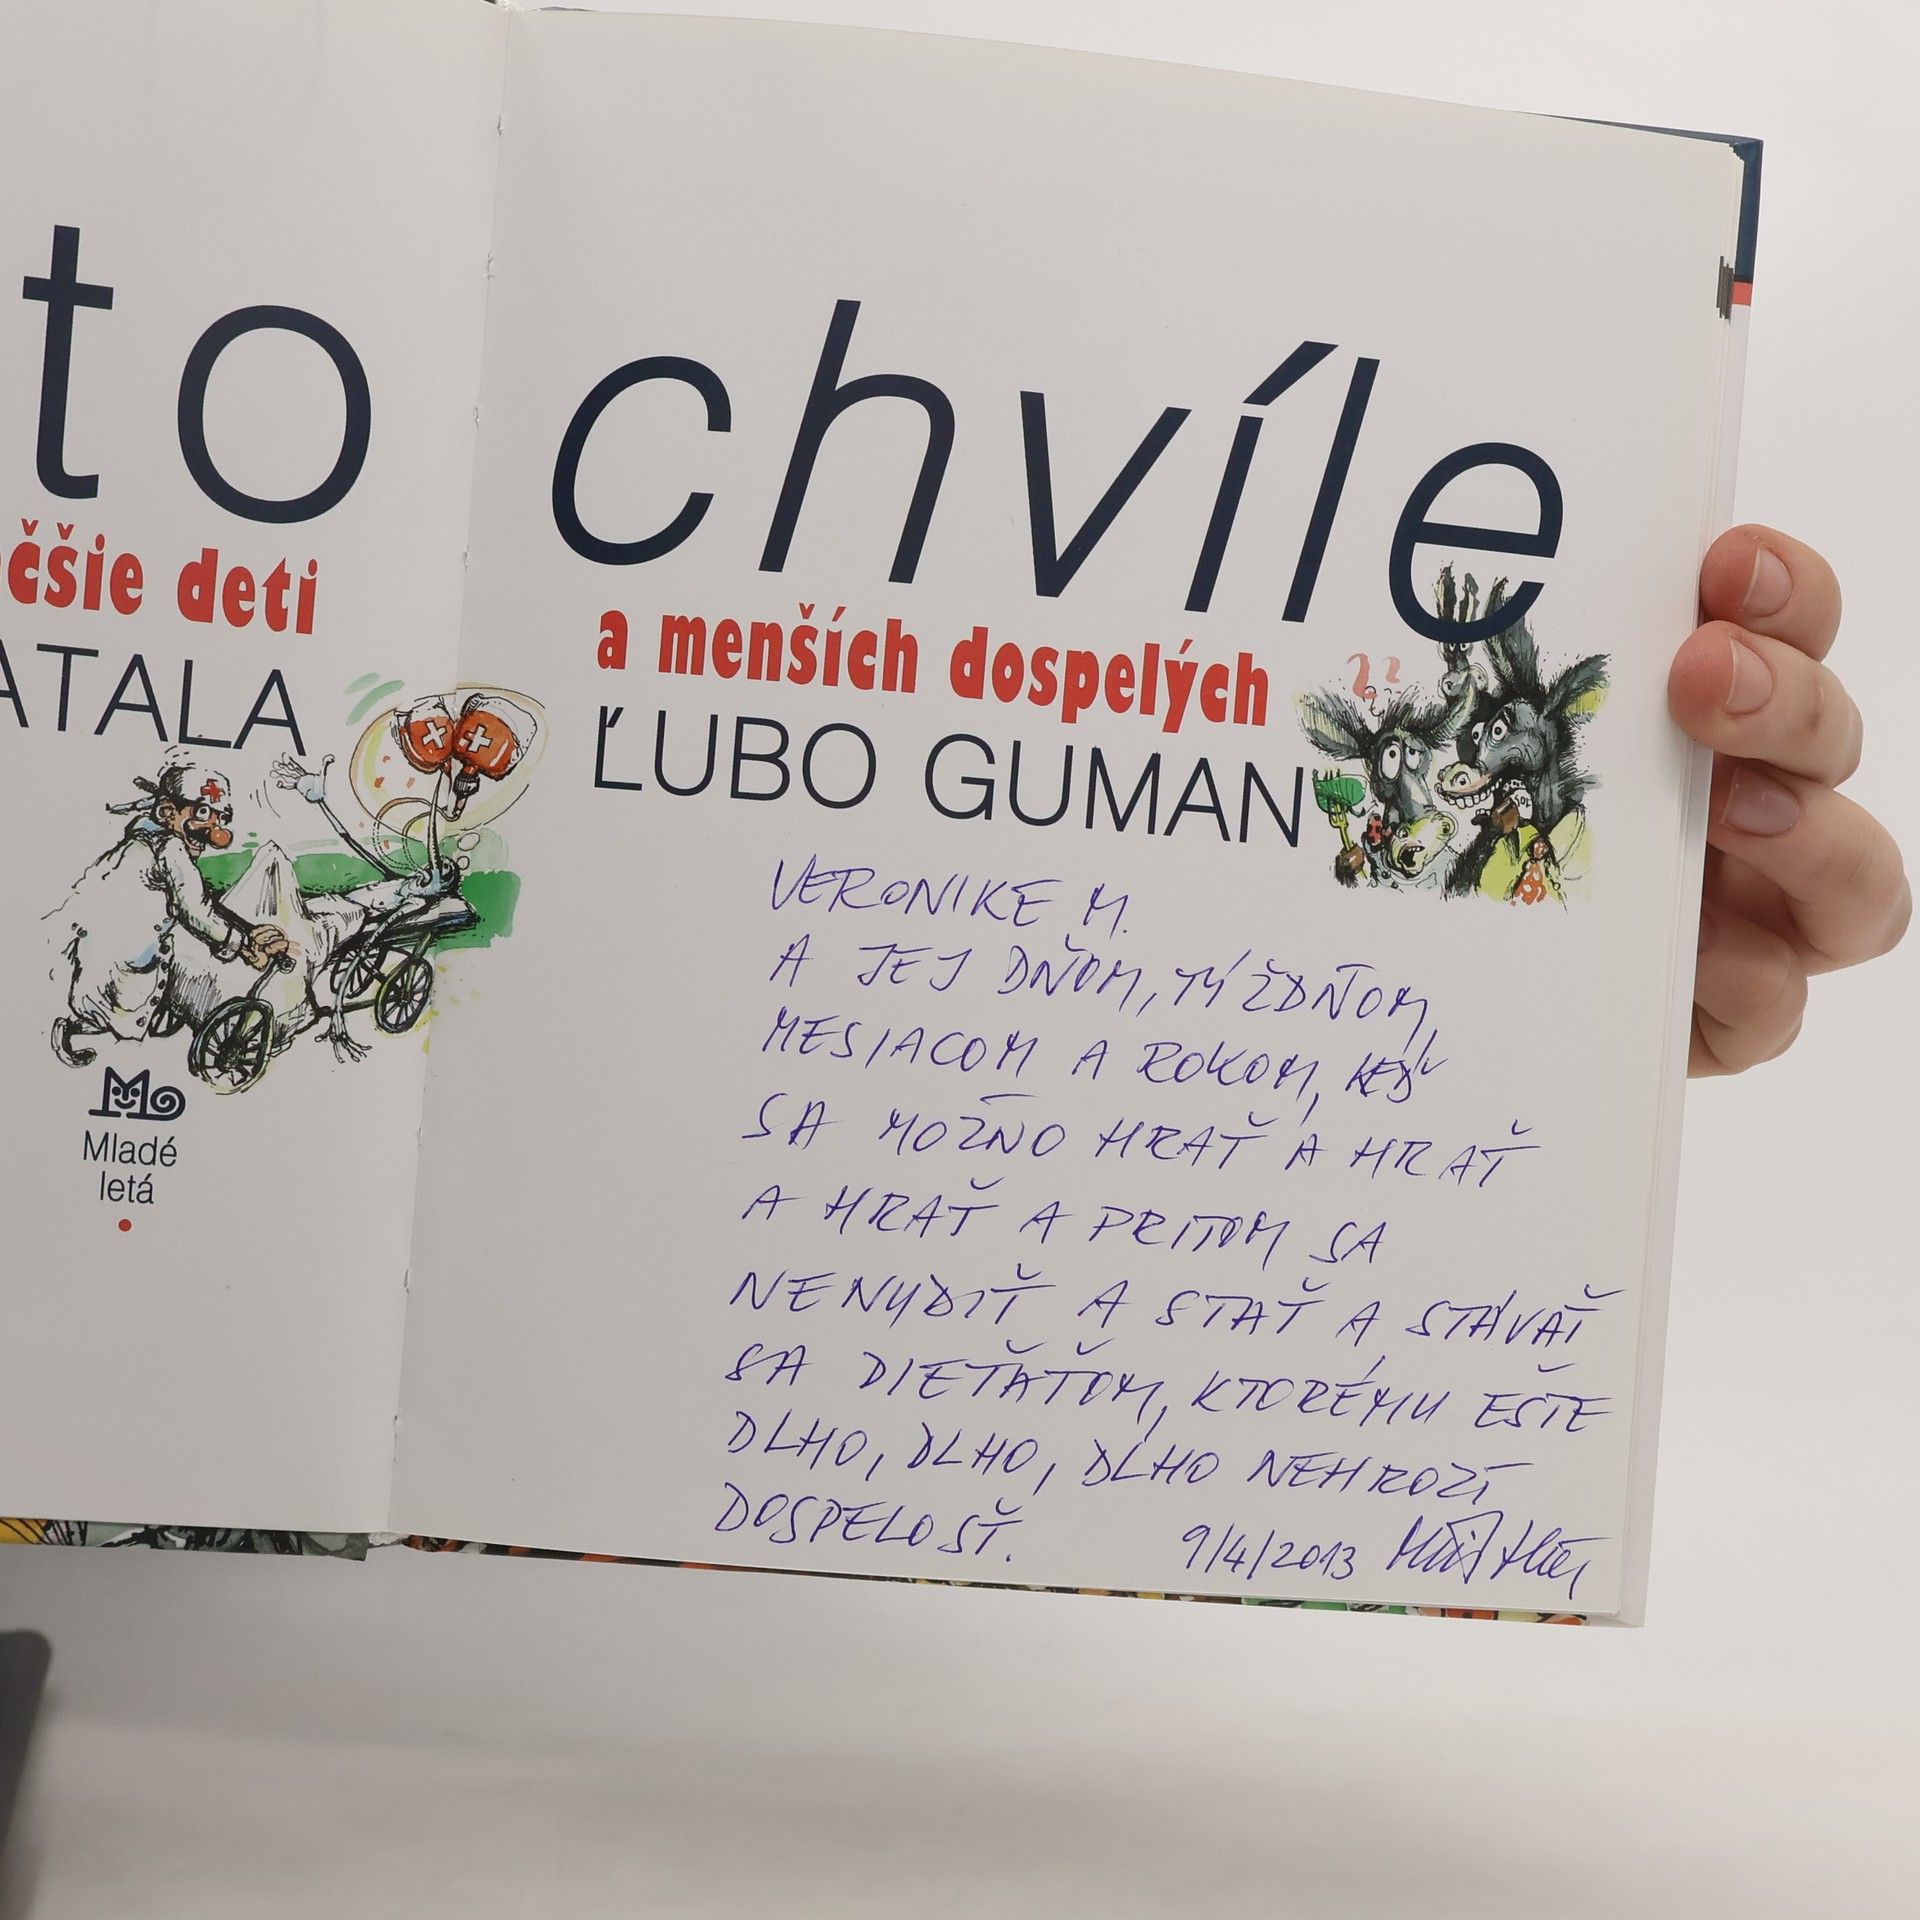 to
čšie deti
ATALA
Mladé
letá
chvíle
a menších dospelých
ĽUBO GUMAN
VERONIKE M.
A JEJ DŇOM, TÝŽDŇOM,
MESIACOM A ROKOM, KEĎ
SA MOŽNO HRAŤ A HRAŤ
A HRAŤ A PRITOM SA
NENUDIŤ A STAŤ A STÁVAŤ
SA DIEŤAŤOM, KTORÉMU EŠTE
DLHO, DLHO, DLHO NEHROZÍ
DOSPELOSŤ.
9/4/2013